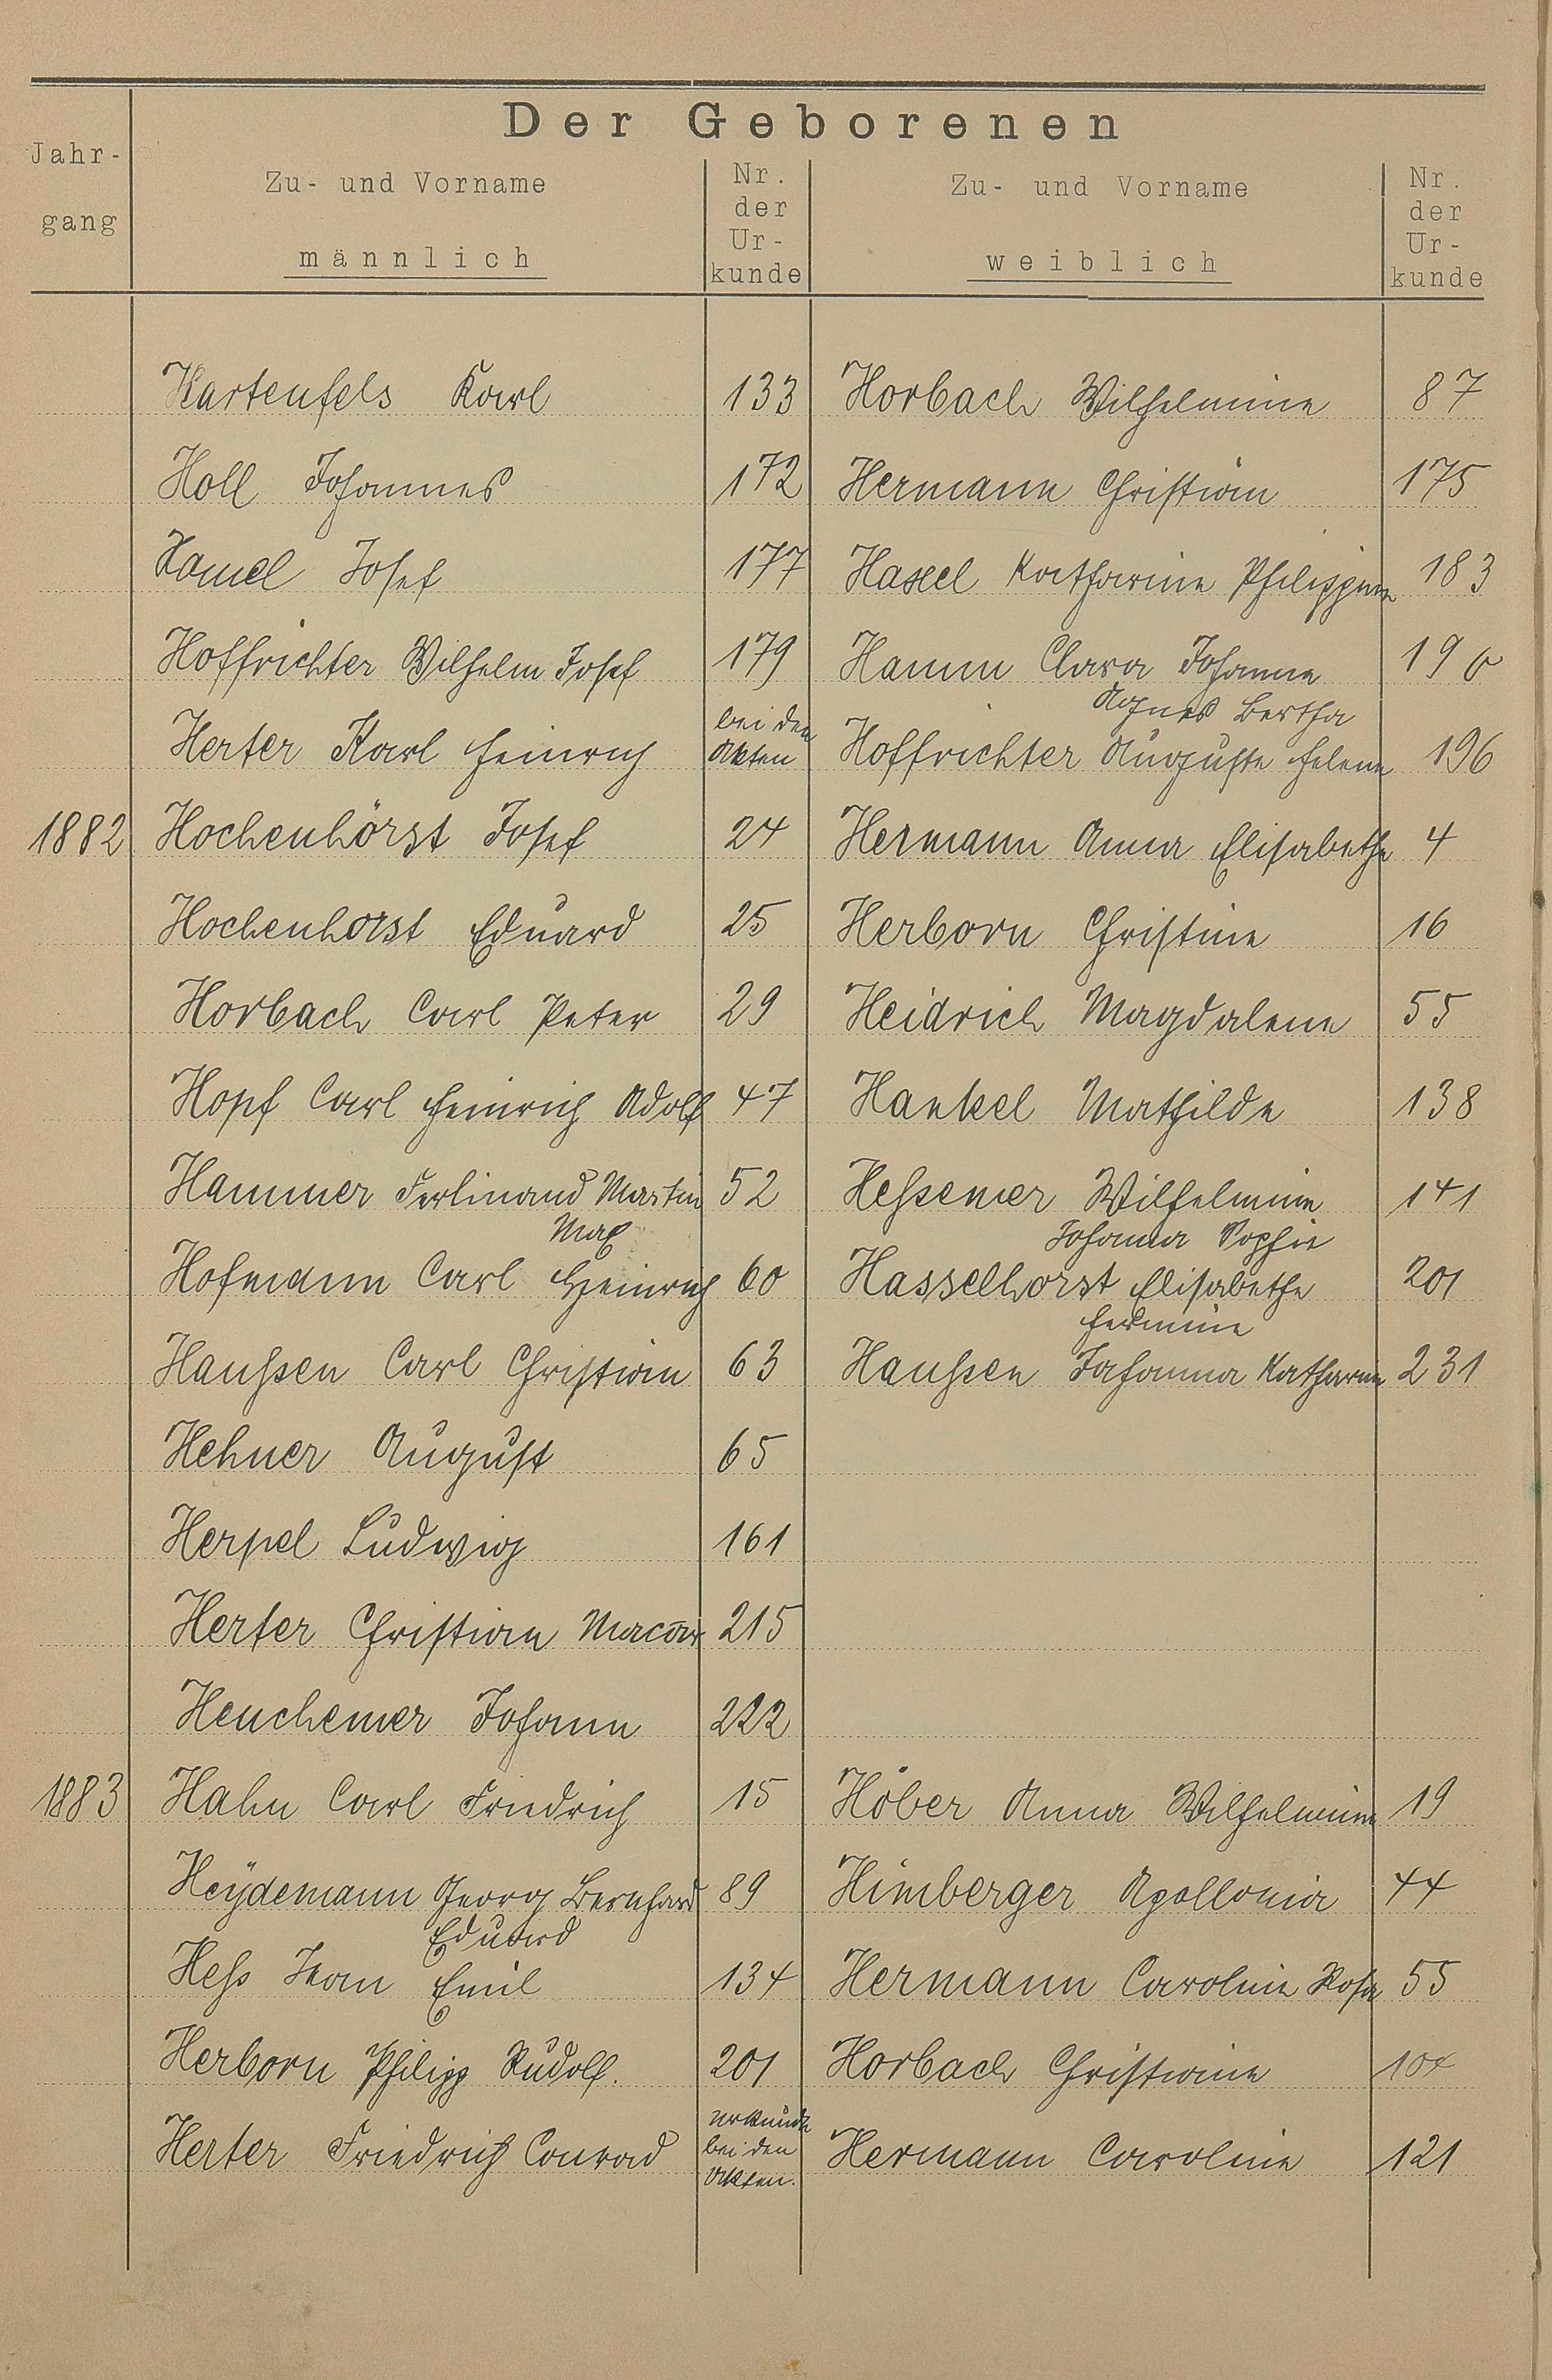 Der Geborenen
Jahr-
gang
Zu- und Vorname
männlich
Nr.
der
Ur-
kunde
Zu- und Vorname
weiblich
Nr.
der
Ur-
kunde
Hartenfels Karl 133 Horbach Wilhelmine 87
Holl Johannes 172 Hermann Christian 175
Hamel Josef 177 Hassel Katharine Philippine 183
Hoffrichter Wilhelm Josef 179 Hamm Clara Johanna 190
Agnes Bertha
Herter Karl Heinrich bei den Akten Hoffrichter Auguste Helene 196
1882 Hochenhörst Josef 24 Hermann Anna Elisabethe 4
Hochenhorst Eduard 25 Herborn Christine 16
Horbach Carl Peter 29 Heidrich Magdalene 55
Hopf Carl Heinrich Adolf 47 Hankel Mathilde 138
Hammer Ferdinand Martin 52 Heßemer Wilhelmine 141
Max Johanna Sophie
Hofmann Carl Heinrich 60 Hasselhorst Elisabethe 201
Hermine
Haußen Carl Christian 63 Haußen Johanna Katharine 231
Hehner August 65
Herpel Ludwig 161
Herter Christian 215
Heuchemer Johann 222
1883 Hahn Carl Friedrich 15 Höber Anna Wilhelmine 19
Heÿdemann Georg Bernhard 89 Himberger Apollonia 44
Eduard
Heß Emil 134 Hermann Caroline Rosa 55
Herborn Philipp Rudolf. 201 Horbach Christiane 104
Herter Friedrich Conrad Urkunde bei den Akten. Hermann Caroline 121